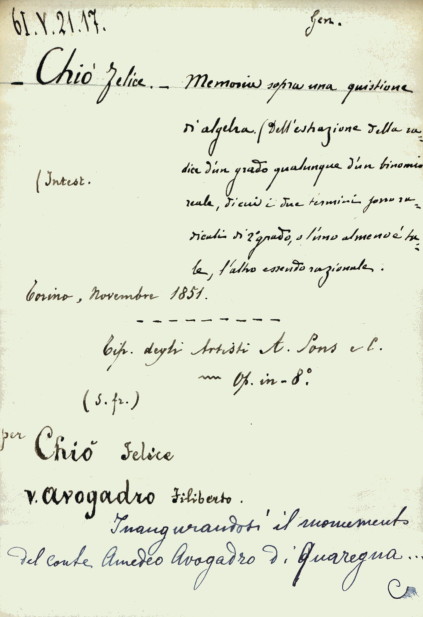 61.V.21.17.
Gen.
– Chiò Felice. – Memoria sopra una quistione
di algebra. (Dell'estrazione della ra-
dice d'un grado qualunque d'un binomio
(Intest.
reale, di cui i due termini sono ra-
dicali di 2° grado, o l'uno almeno è ta-
le, l'altro essendo razionale.
Torino, Novembre 1851.
Tip. degli Artisti A. Pons e C.
Op. in-8°.
(S. fr.)
per
Chiò Felice
v. Avogadro Filiberto.
Inaugurandosi il momemento
del conte Amedeo Avogadro di Quaregna...